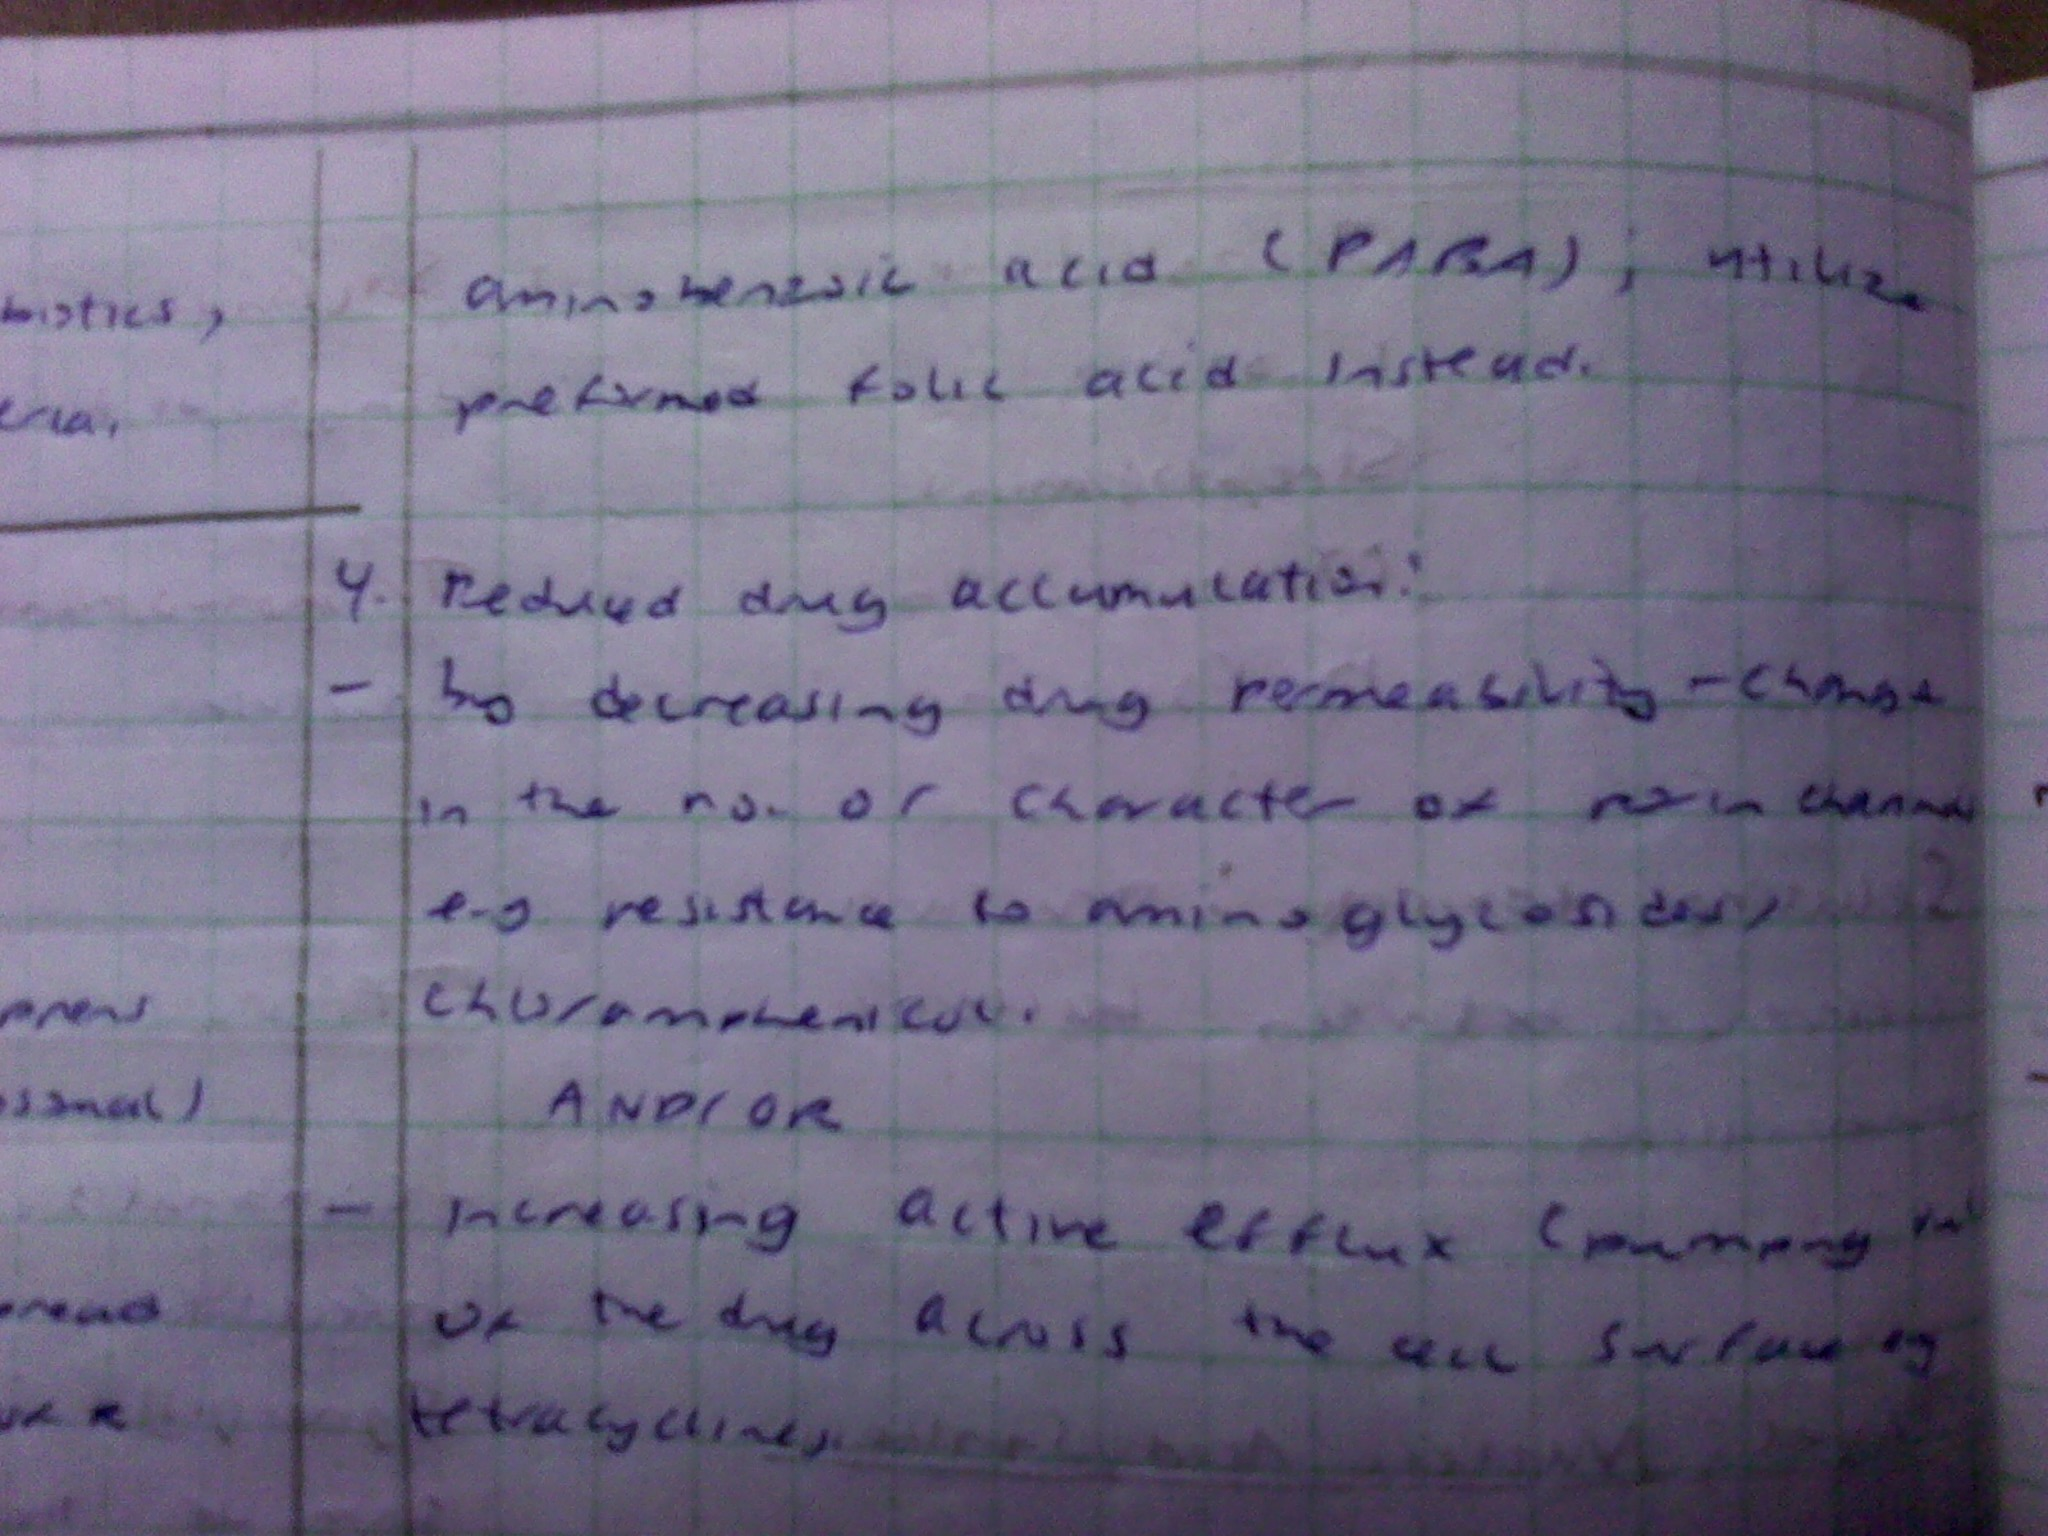 aminobenzoic acid (PABA); utilize
preformed folic acid instead.
4. Reduced drug accumulation:
- by decreasing drug permeability - change
in the no. or character of porin channels
e.g resistance to aminoglycosides,
chloramphenicol.
AND/OR
- increasing active efflux (pumping out
of the drug across the cell surface eg
tetracyclines.